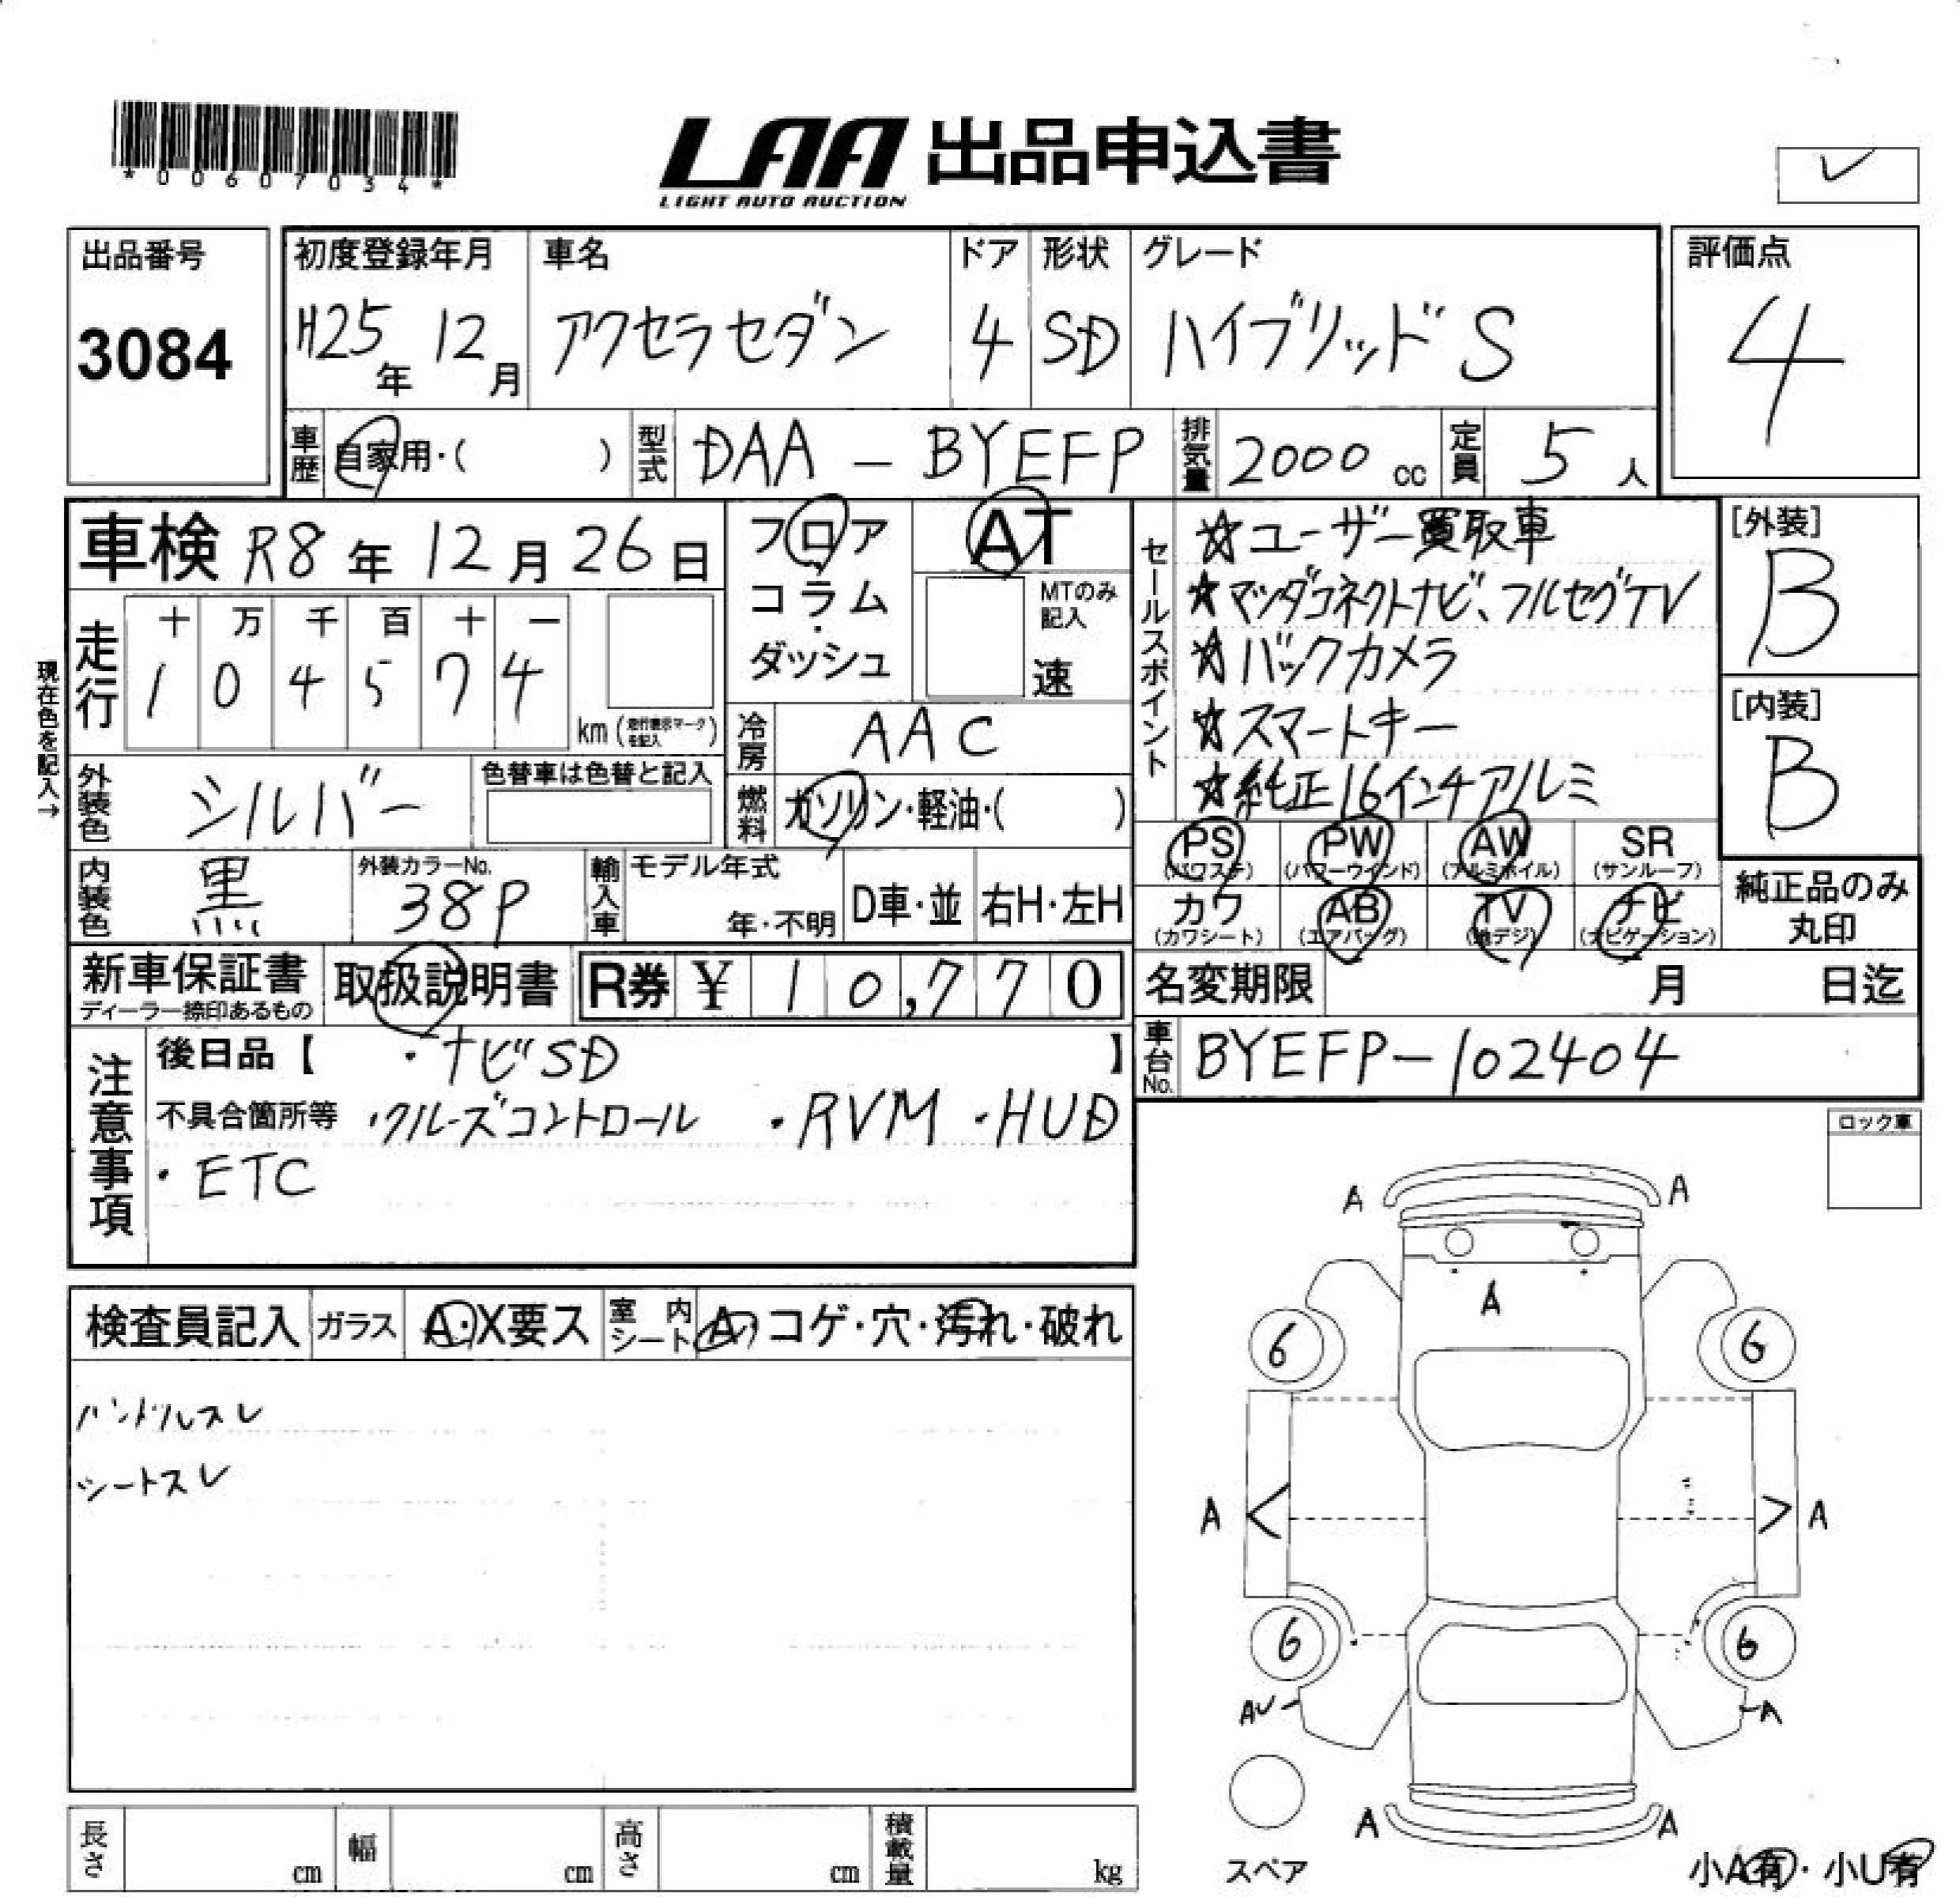 *00607034*
LAA 出品申込書
LIGHT AUTO AUCTION
レ
出品番号
3084
初度登録年月
H25年 12月
車名
アクセラセダン
ドア
4
形状
SD
グレード
ハイブリッド S
評価点
4
車歴 自家用・( )
型式 DAA - BYEFP
排気量 2000 cc
定員 5 人
車検 R8年 12月 26日
フロア
コラム
・
ダッシュ
AT
MTのみ
記入
速
セールスポイント
☆ユーザー買取車
★マツダコネクトナビ、フルセグTV
☆バックカメラ
☆スマートキー
☆純正16インチアルミ
[外装]
B
[内装]
B
現在色を記入→
走行
十 万 千 百 十 一
1 0 4 5 7 4
km (走行表示マークを記入)
冷房 AAC
外装色 シルバー
色替車は色替と記入
燃料 ガソリン・軽油・( )
内装色 黒
外装カラーNo.
38P
輸入車
モデル年式
年・不明
D車・並
右H・左H
PS
(パワステ)
PW
(パワーウインド)
AW
(アルミホイル)
SR
(サンルーフ)
カワ
(カワシート)
AB
(エアバッグ)
TV
(地デジ)
ナビ
(ナビゲーション)
純正品のみ
丸印
新車保証書
ディーラー捺印あるもの
取扱説明書
R券 ¥ 10,770
名変期限 月 日迄
車台No. BYEFP-102404
注意事項
後日品【 ・ナビSD 】
不具合箇所等 ・クルーズコントロール ・RVM ・HUD
・ETC
ロック車
検査員記入
ガラス A・X要ス
室内シート A・コゲ・穴・汚れ・破れ
ハンドルスレ
シートスレ
A A
A
6 6
A < > A
6 6
AU A
A A
スペア
小A有・小U有
長さ cm
幅 cm
高さ cm
積載量 kg